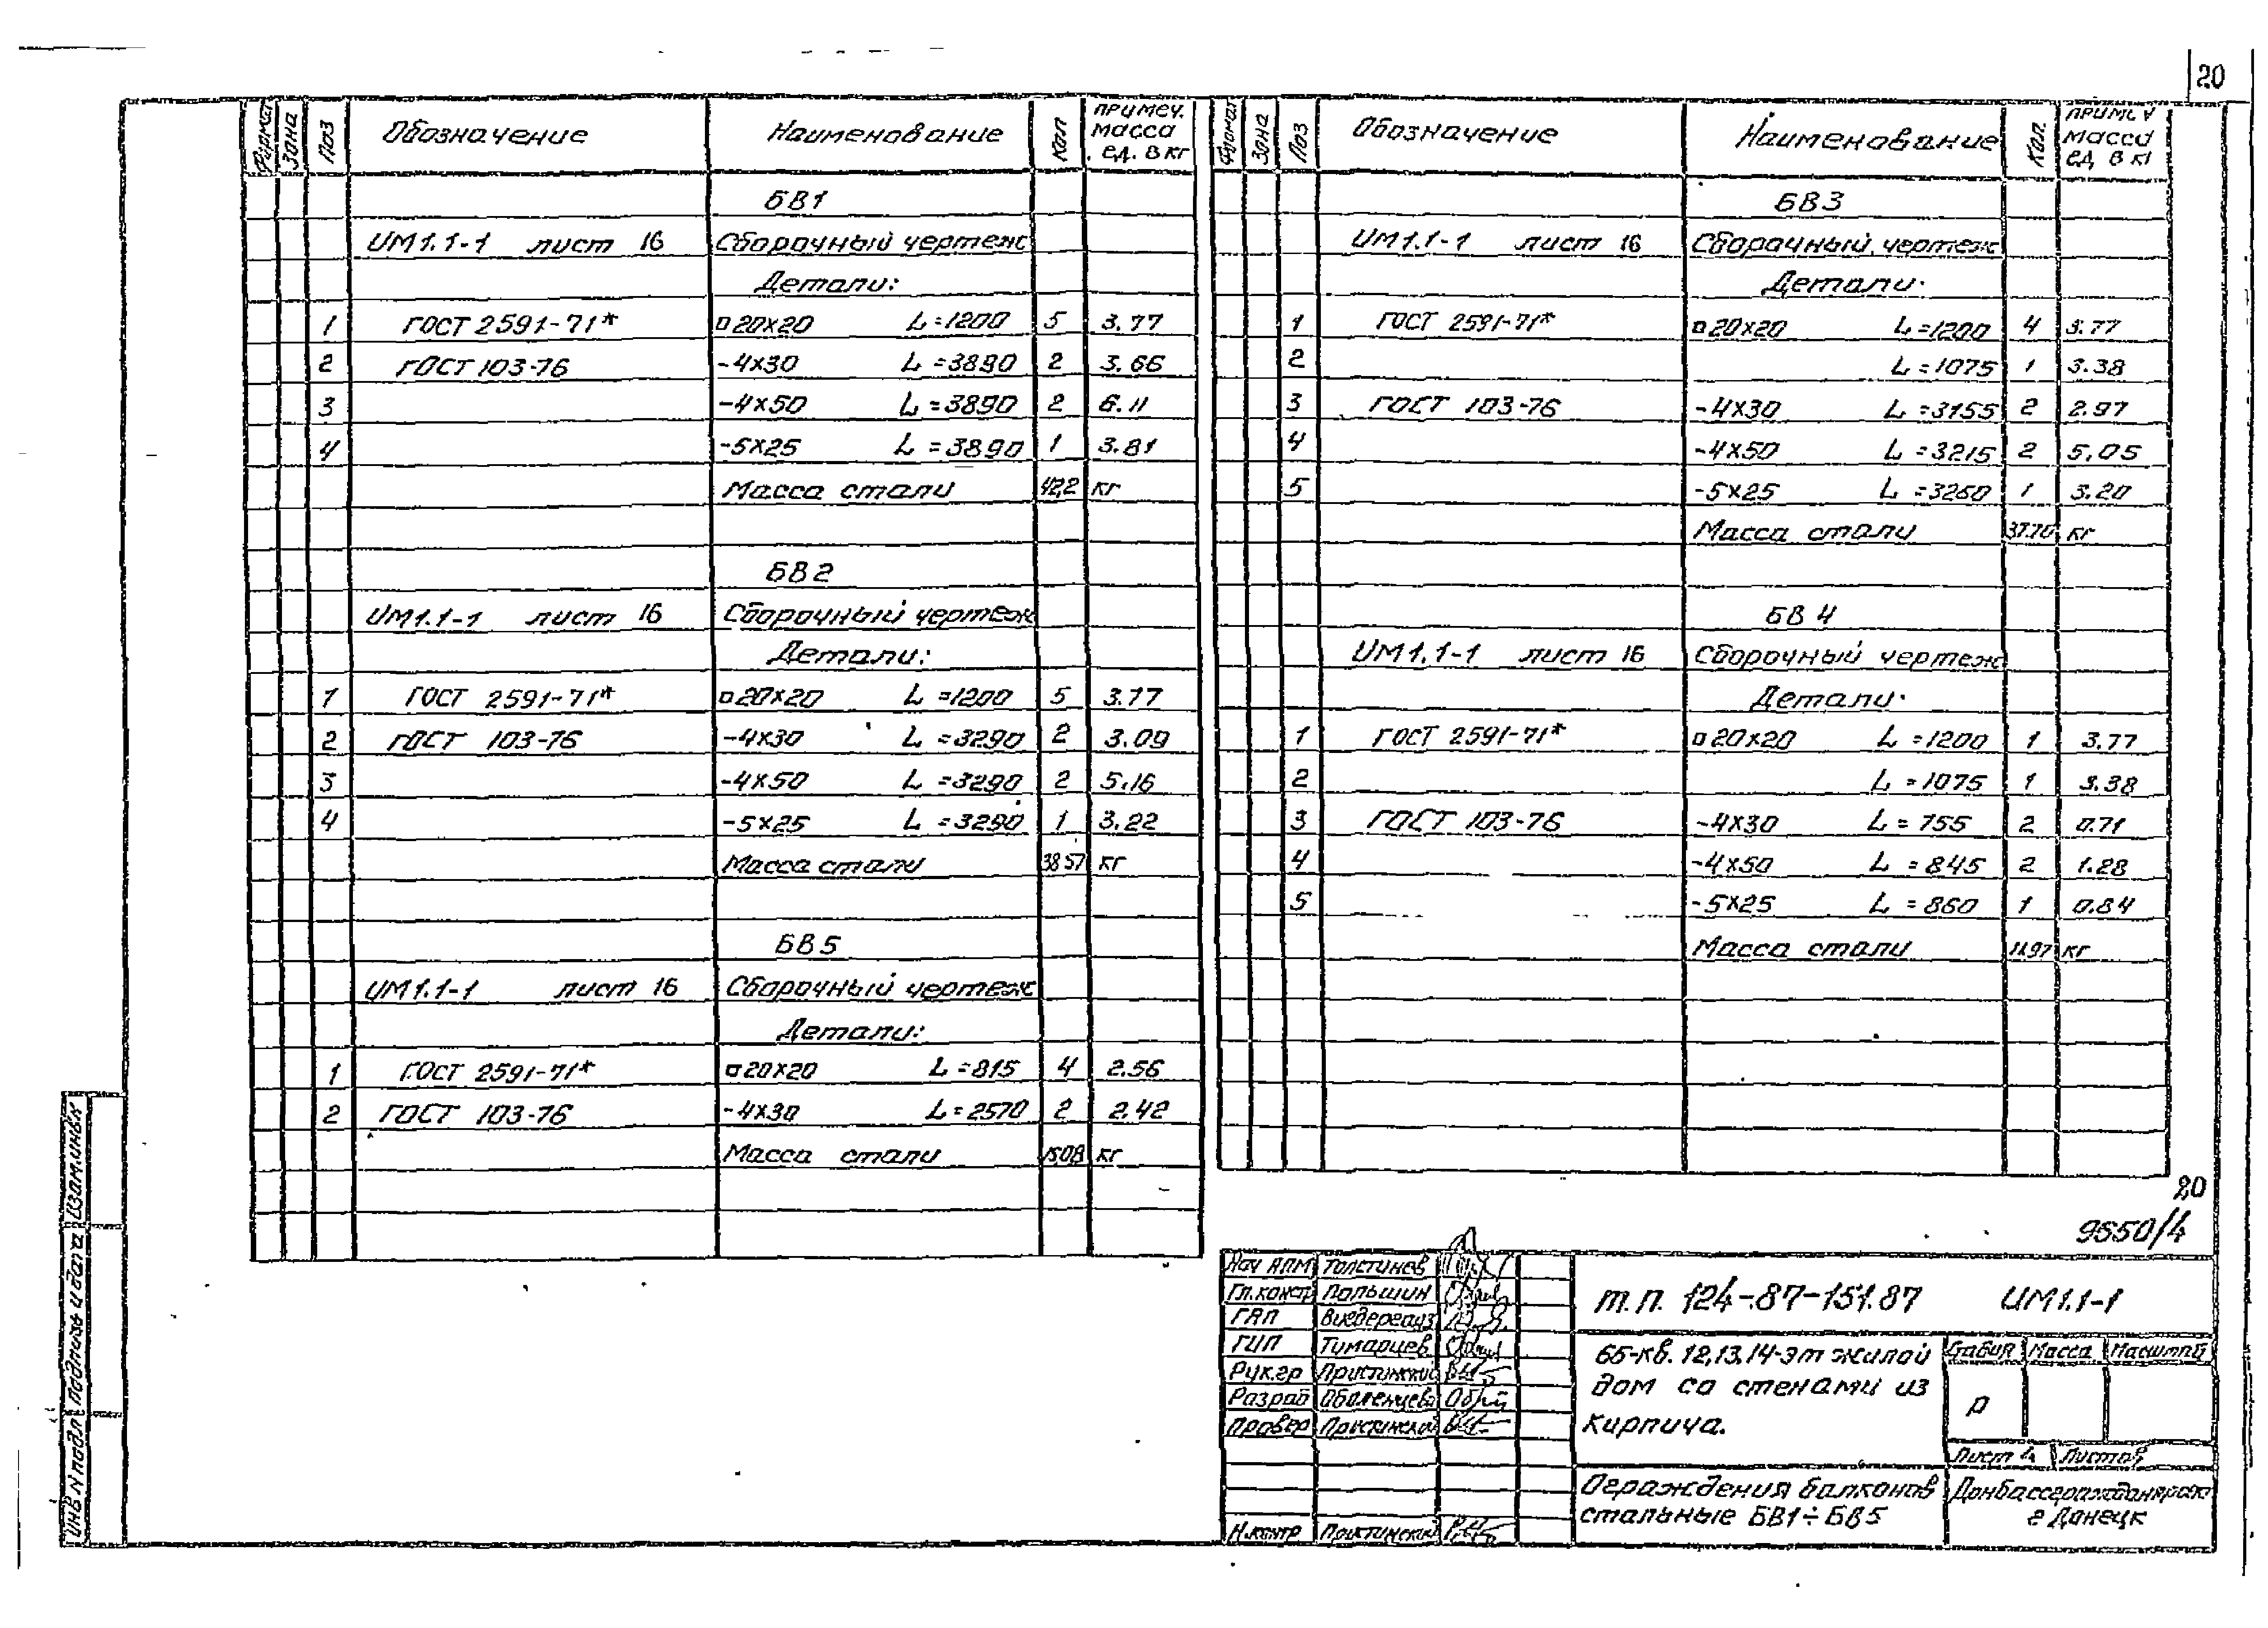 20
Формат Зона Поз Обозначение Наименование Кол Примеч. масса ед. в кг
БВ1
ИМ1.1-1 лист 16 Сборочный чертеж
Детали:
1 ГОСТ 2591-71* □20×20 L=1200 5 3.77
2 ГОСТ 103-76 -4×30 L=3890 2 3.66
3 -4×50 L=3890 2 6.11
4 -5×25 L=3890 1 3.81
Масса стали 42,2 кг
БВ2
ИМ1.1-1 лист 16 Сборочный чертеж
Детали:
1 ГОСТ 2591-71* □20×20 L=1200 5 3.77
2 ГОСТ 103-76 -4×30 L=3290 2 3.09
3 -4×50 L=3290 2 5.16
4 -5×25 L=3290 1 3.22
Масса стали 38.57 кг
БВ5
ИМ1.1-1 лист 16 Сборочный чертеж
Детали:
1 ГОСТ 2591-71* □20×20 L=815 4 2.56
2 ГОСТ 103-76 -4×30 L=2570 2 2.42
Масса стали 15.08 кг
Формат Зона Поз Обозначение Наименование Кол. Примеч масса ед в кг
БВ3
ИМ1.1-1 лист 16 Сборочный чертеж
Детали:
1 ГОСТ 2591-71* □20×20 L=1200 4 3.77
2 L=1075 1 3.38
3 ГОСТ 103-76 -4×30 L=3155 2 2.97
4 -4×50 L=3215 2 5.05
5 -5×25 L=3260 1 3.20
Масса стали 37.70 кг
БВ4
ИМ1.1-1 лист 16 Сборочный чертеж
Детали:
1 ГОСТ 2591-71* □20×20 L=1200 1 3.77
2 L=1075 1 3.38
3 ГОСТ 103-76 -4×30 L=755 2 0.71
4 -4×50 L=845 2 1.28
5 -5×25 L=860 1 0.84
Масса стали 11.97 кг
20
9550/4
Нач АПМ Толстинев
Гл.констр Пальшин
ГАП
ГИП Тумарцев
Рук.гр
Разраб
Провер
Н.контр
т.п. 124-87-151.87 ИМ1.1-1
65-кв. 12,13,14-эт жилой
дом со стенами из
кирпича.
Стадия Масса Масштаб
Р
Лист 4 Листов
Ограждения балконов
стальные БВ1÷БВ5
Донбассгражданпроект
г Донецк
Инв N подл. Подпись и дата Взам.инв.N